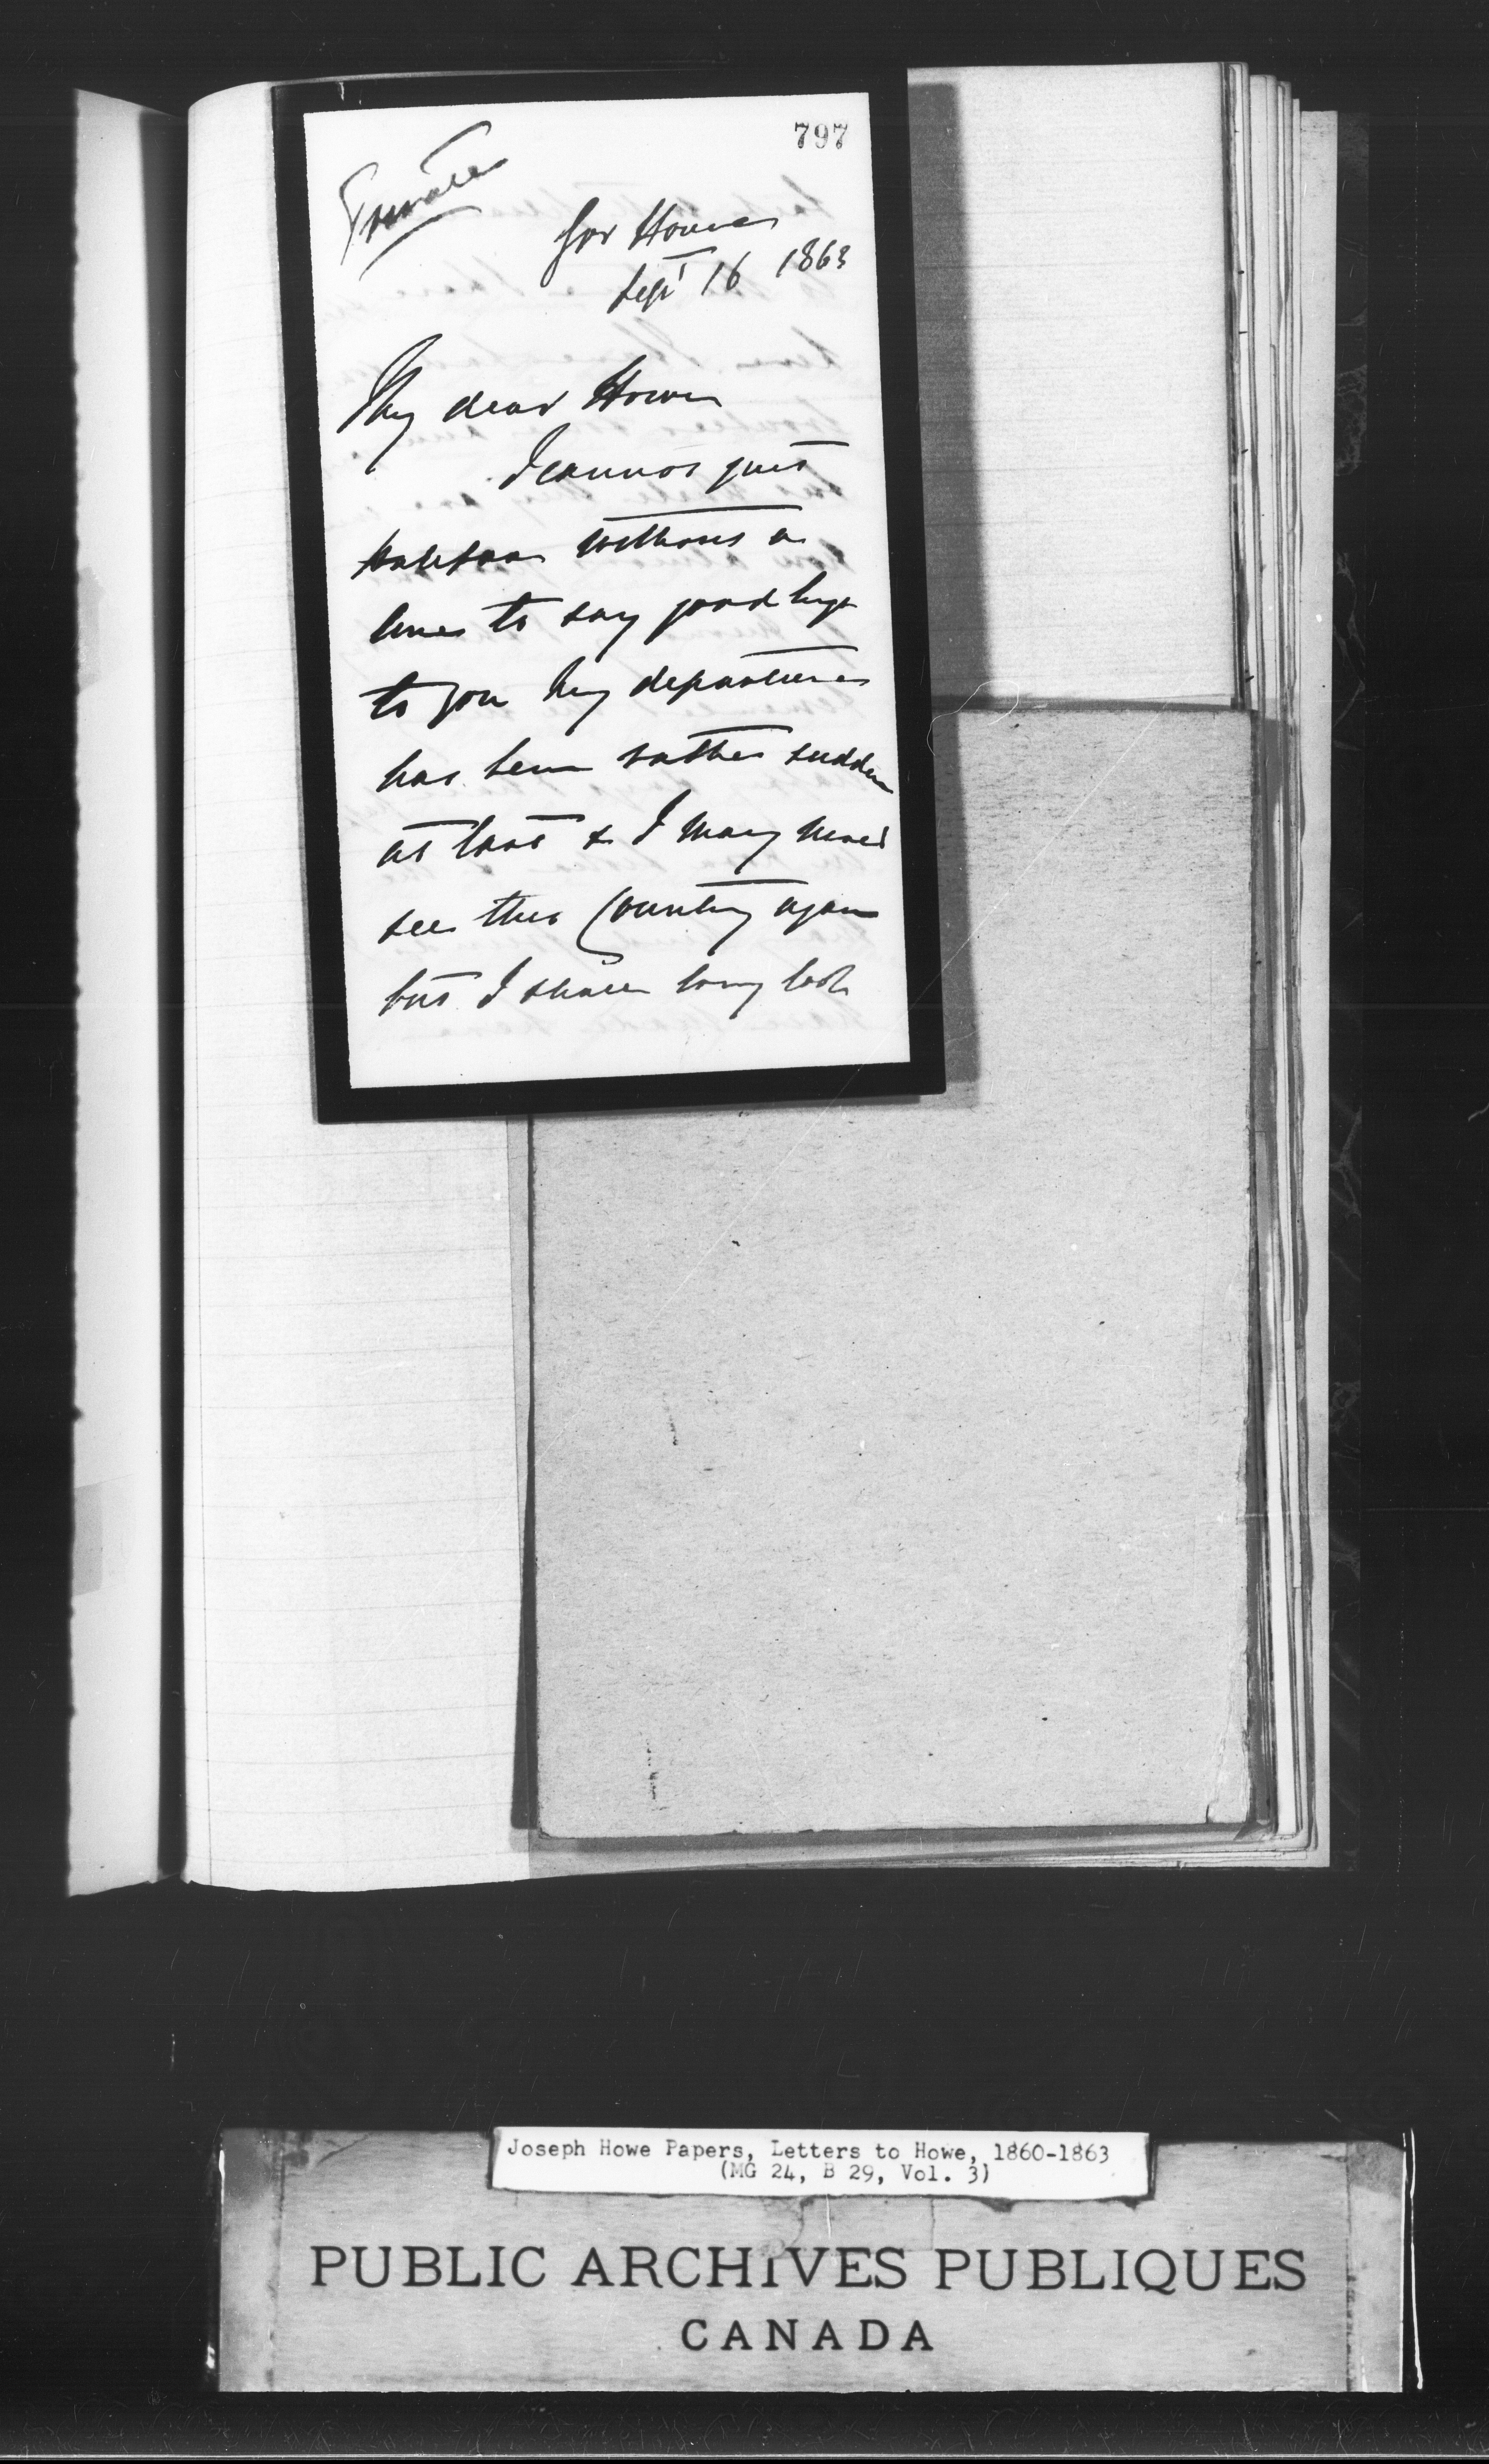 797
Private
Gov House
Sept 16 1863
My dear Howe
I cannot quit
Halifax without a
line to say good bye
to you My departure
has been rather sudden
at last & I may never
see this Country again
but I shall long look
Joseph Howe Papers, Letters to Howe, 1860-1863
(MG 24, B 29, Vol. 3)
PUBLIC ARCHIVES PUBLIQUES
CANADA